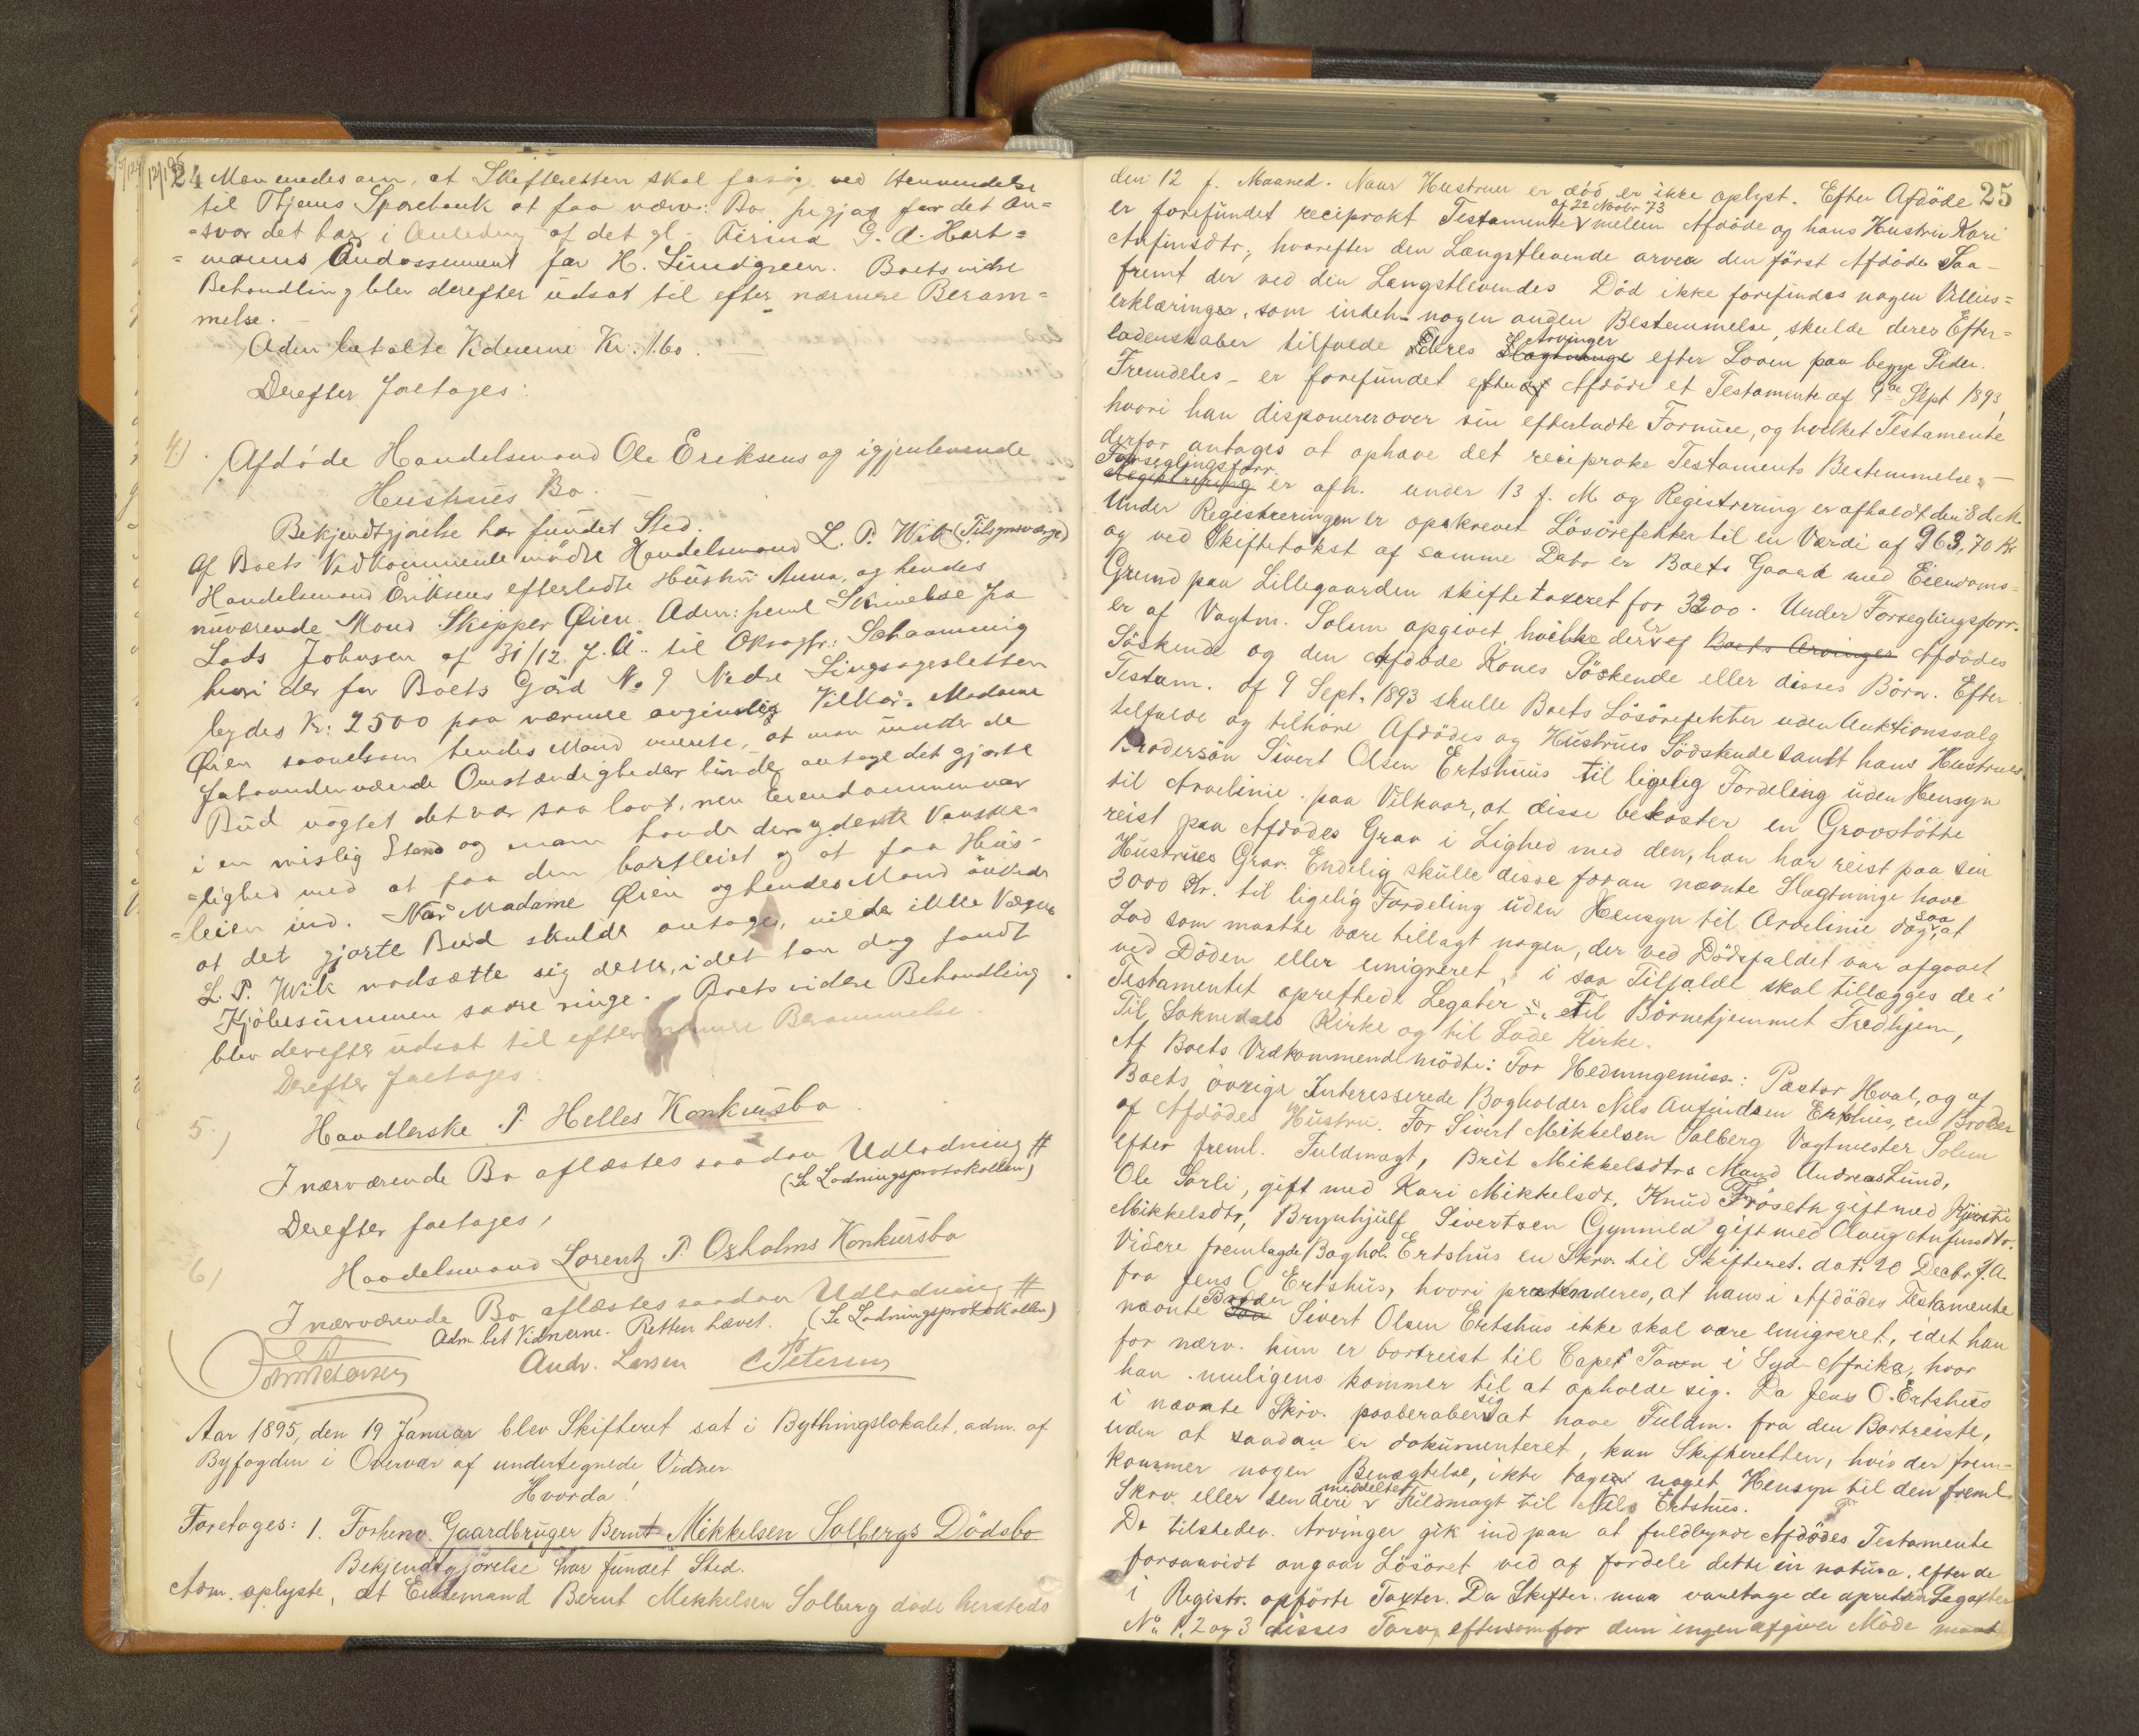 24 Man enedes om, at Skifteretten skal forsøge ved Henvendelse
til Thjems Sparebank at faa nærv: Bo frigjort for det An=
=svar det har i Anledning af det gl. Firma G. A. Hart=
=manns Endossement for H. Lundgreen. Boets vidre
Behandling blev derefter udsat til efter nærmere Beram=
melse.
Adm betalte Vidnerne Kr. 1.60.
Derefter foretoges:
4.) Afdøde Handelsmand Ole Eriksens og igjenlevende
Hustrues Bo.
Bekjendtgjørelse har fundet Sted.
Af Boets Vedkommende mødte Handelsmand L. P. Wik (Tilsynsværge)
Handelsmand Eriksens efterladte Hustru Anna, og hendes
nuværende Mand Skipper Øien. Adm: freml Skrivelse fra
Lods Johnsen af 31/12 f. A. til Oksagfr: Schaanning
hvori der for Boets Gård No 9 Nedre Singsagersletten
bydes Kr: 2500 paa nærmere angivelig Vilkår. Madame
Øien saavelsom hendes Mand mente, at man under de
forhaandenværende Omstændigheder burde antage det gjorte
Bud uagtet det var saa lavt, men Eiendommen var
i en mislig Stand og man havde den yderste Vanske=
=lighed med at faa den bortleiet og at faa Hus=
=leien ind. Når Madame Øien og hendes Mand ønskede
at det gjorte Bud skulde antages, vilde ikke Værgen
L. P. Wik modsætte sig dette, idet han dog fandt
Kjøbesummen svære ringe. Boets videre Behandling
blev derefter udsat til efter nærmere Berammelse.
Derefter foretoges:
5.) Handlerske P. Helles Konkursbo
I nærværende Bo aflæstes saadan Udlodning #
(Se Lodningsprotokollen)
Derefter foretoges,
6) Handelsmand Lorentz P Oxholms Konkursbo
I nærværende Bo aflæstes saadan Udlodning #
Adm. bet Vidnerne. Retten hævet. (Se Lodningsprotokollen)
Andr. Larsen C Petersen
Aar 1895, den 19 Januar blev Skifteret sat i Bythingslokalet, adm. af
Byfogden i Overvær af undertegnede Vidner.
Hvorda!
Foretoges: 1. Forhenv. Gaardbruger Bernt Mikkelsen Solbergs Dödsbo
Bekjendtgjörelse har fundet Sted.
Adm. oplyste, at Enkemand Bernt Mikkelsen Solberg döde hersteds
25
den 12 f. Maaned. Naar Hustruen er död er ikke oplyst. Efter Afdöde
af 22 Novbr 73
er forefundet reciprokt Testamente mellem Afdöde og hans Hustru Kari
Anfinsdtr., hvorefter den Længstlevende arver den först Afdöde Saa-
fremt der ved den Længstlevendes Död ikke forefindes nogen Villies=
erklæringer, som indeh. nogen anden Bestemmelse, skulde deres Efter=
ladenskaber tilfalde Deres Slægtninge Arvinger efter Loven paa begge Sider.
Fremdeles er forefundet efter Afdöde et Testamente af 9de Sept 1893,
hvori han disponerer over sin efterladte Formue, og hvilket Testamente
derfor antages at ophæve det reciproke Testaments Bestemmelser.
Forseglingsforr.
Registrering er afh. under 13 f. M. og Registrering er afholdt den 8 d. M.
Under Registreringen er opskrevet Lösörefekter til en Værdi af 963,70 Kr
og ved Skiftetakst af samme Dato er Boets Gaard med Eiendoms=
Grund paa Lillegaarden skiftetaxeret for 3200. Under Forseglingsforr.
er af Vagtm. Solem opgivet, hvilke der er af Boets Arvinger Afdödes
Söskende og den Afdöde Kones Söskende eller disses Börn. Efter
Testam. af 9 Sept. 1893 skulle Boets Lösörefekter uden Auktionssalg
tilfalde og tilhöre Afdödes og Hustrues Södskende samt hans Hustrues
Brodersön Sivert Olsen Ertshuus til ligelig Fordeling uden Hensyn
til Arvelinie paa Vilkaar, at disse bekoster en Gravstötte
reist paa Afdödes Grav i Lighed med den, han har reist paa sin
Hustrues Grav. Endelig skulle disse foran nævnte Slægtninge have
3000 Kr. til ligelig Fordeling uden Hensyn til Arvelinie dog saa, at
Lod som maatte være tillagt nogen, der ved Dödsfaldet var afgaaet
ved Döden eller emigreret, i saa Tilfælde skal tillægges de i
Testamentet oprettede Legater: Til Börnehjemmet Fredhjem,
Til Soknedals Kirke og til Lade Kirke.
Af Boets Vedkommende mödte: For Hedningemiss: Pastor Hval, og af
Boets övrige Interesserede Bogholder Nils Anfindsen Ertshus, en Broder
af Afdödes Hustru. For Sivert Mikkelsen Solberg Vagtmester Solem
efter freml. Fuldmagt, Brit Mikkelsdtrs Mand Andreas Lund,
Ole Sorli, gift med Kari Mikkelsdt, Knud Fröseth gift med Kjersti
Mikkelsdtr, Brynhjulf Sivertsen Gynneld gift med Olaug Anfinsdtr.
Videre fremlagde Boghol. Ertshus en Skrv. til Skifteret. dat. 20 Decbr f. A.
fra Jens O Ertshus, hvori prætenderes, at hans i Afdödes Testamente
nævnte Sön Broder Sivert Olsen Ertshus ikke skal være emigreret, idet han
for nærv. kun er bortreist til Capet Town i Syd-Afrika, hvor
han muligens kommer til at opholde sig. Da Jens O. Ertshus
i nævnte Skrv. paaberaber sig at have Fuldm. fra den Bortreiste,
uden at saadan er dokumenteret, kan Skifteretten, hvis der frem-
kommer nogen Benægtelse, ikke tage noget Hensyn til den freml.
Skrv. eller den deri meddelte Fuldmagt til Nils Ertshus.
De tilstedev. Arvinger gik ind paa at fuldbyrde Afdödes Testamente
forsaavidt angaar Lösöret ved at fordele dette in natura, efter de
i Registr. opförte Taxter. Da Skifter. maa varetage de oprettede Legater
No 1, 2 og 3 disses Tarv, eftersom for dem ingen afgiver Möde maatte